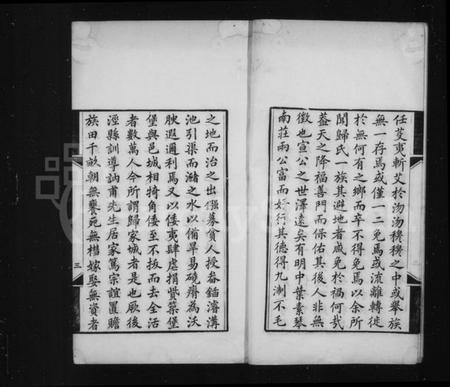 任芟夷斬艾於沕沕穆穆之中或舉族
無一存焉或僅一二免焉或流離轉徙
於無何有之鄉而卒不得免焉以余所
聞歸氏一族其避地者咸免於禍何哉
蓋天之降福善門而保佑其後人非無
徵也宣公之世澤遠矣有明中葉素琴
南莊兩公富而好行其德得九制不毛
之地而治之出疆募貧人授畚鍤濬溝
池引渠而瀦之水以備旱易磽瘠為沃
腴遐邇利焉又以倭夷肆虐捐貲築堡
堡與邑城相犄角倭至不拔而去全活
者數萬人今所謂歸家城者是也厥後
涇縣訓導訥甫先生居家篤宗誼置贍
族田千畝朝無饔死無槥嫁娶無資者
三